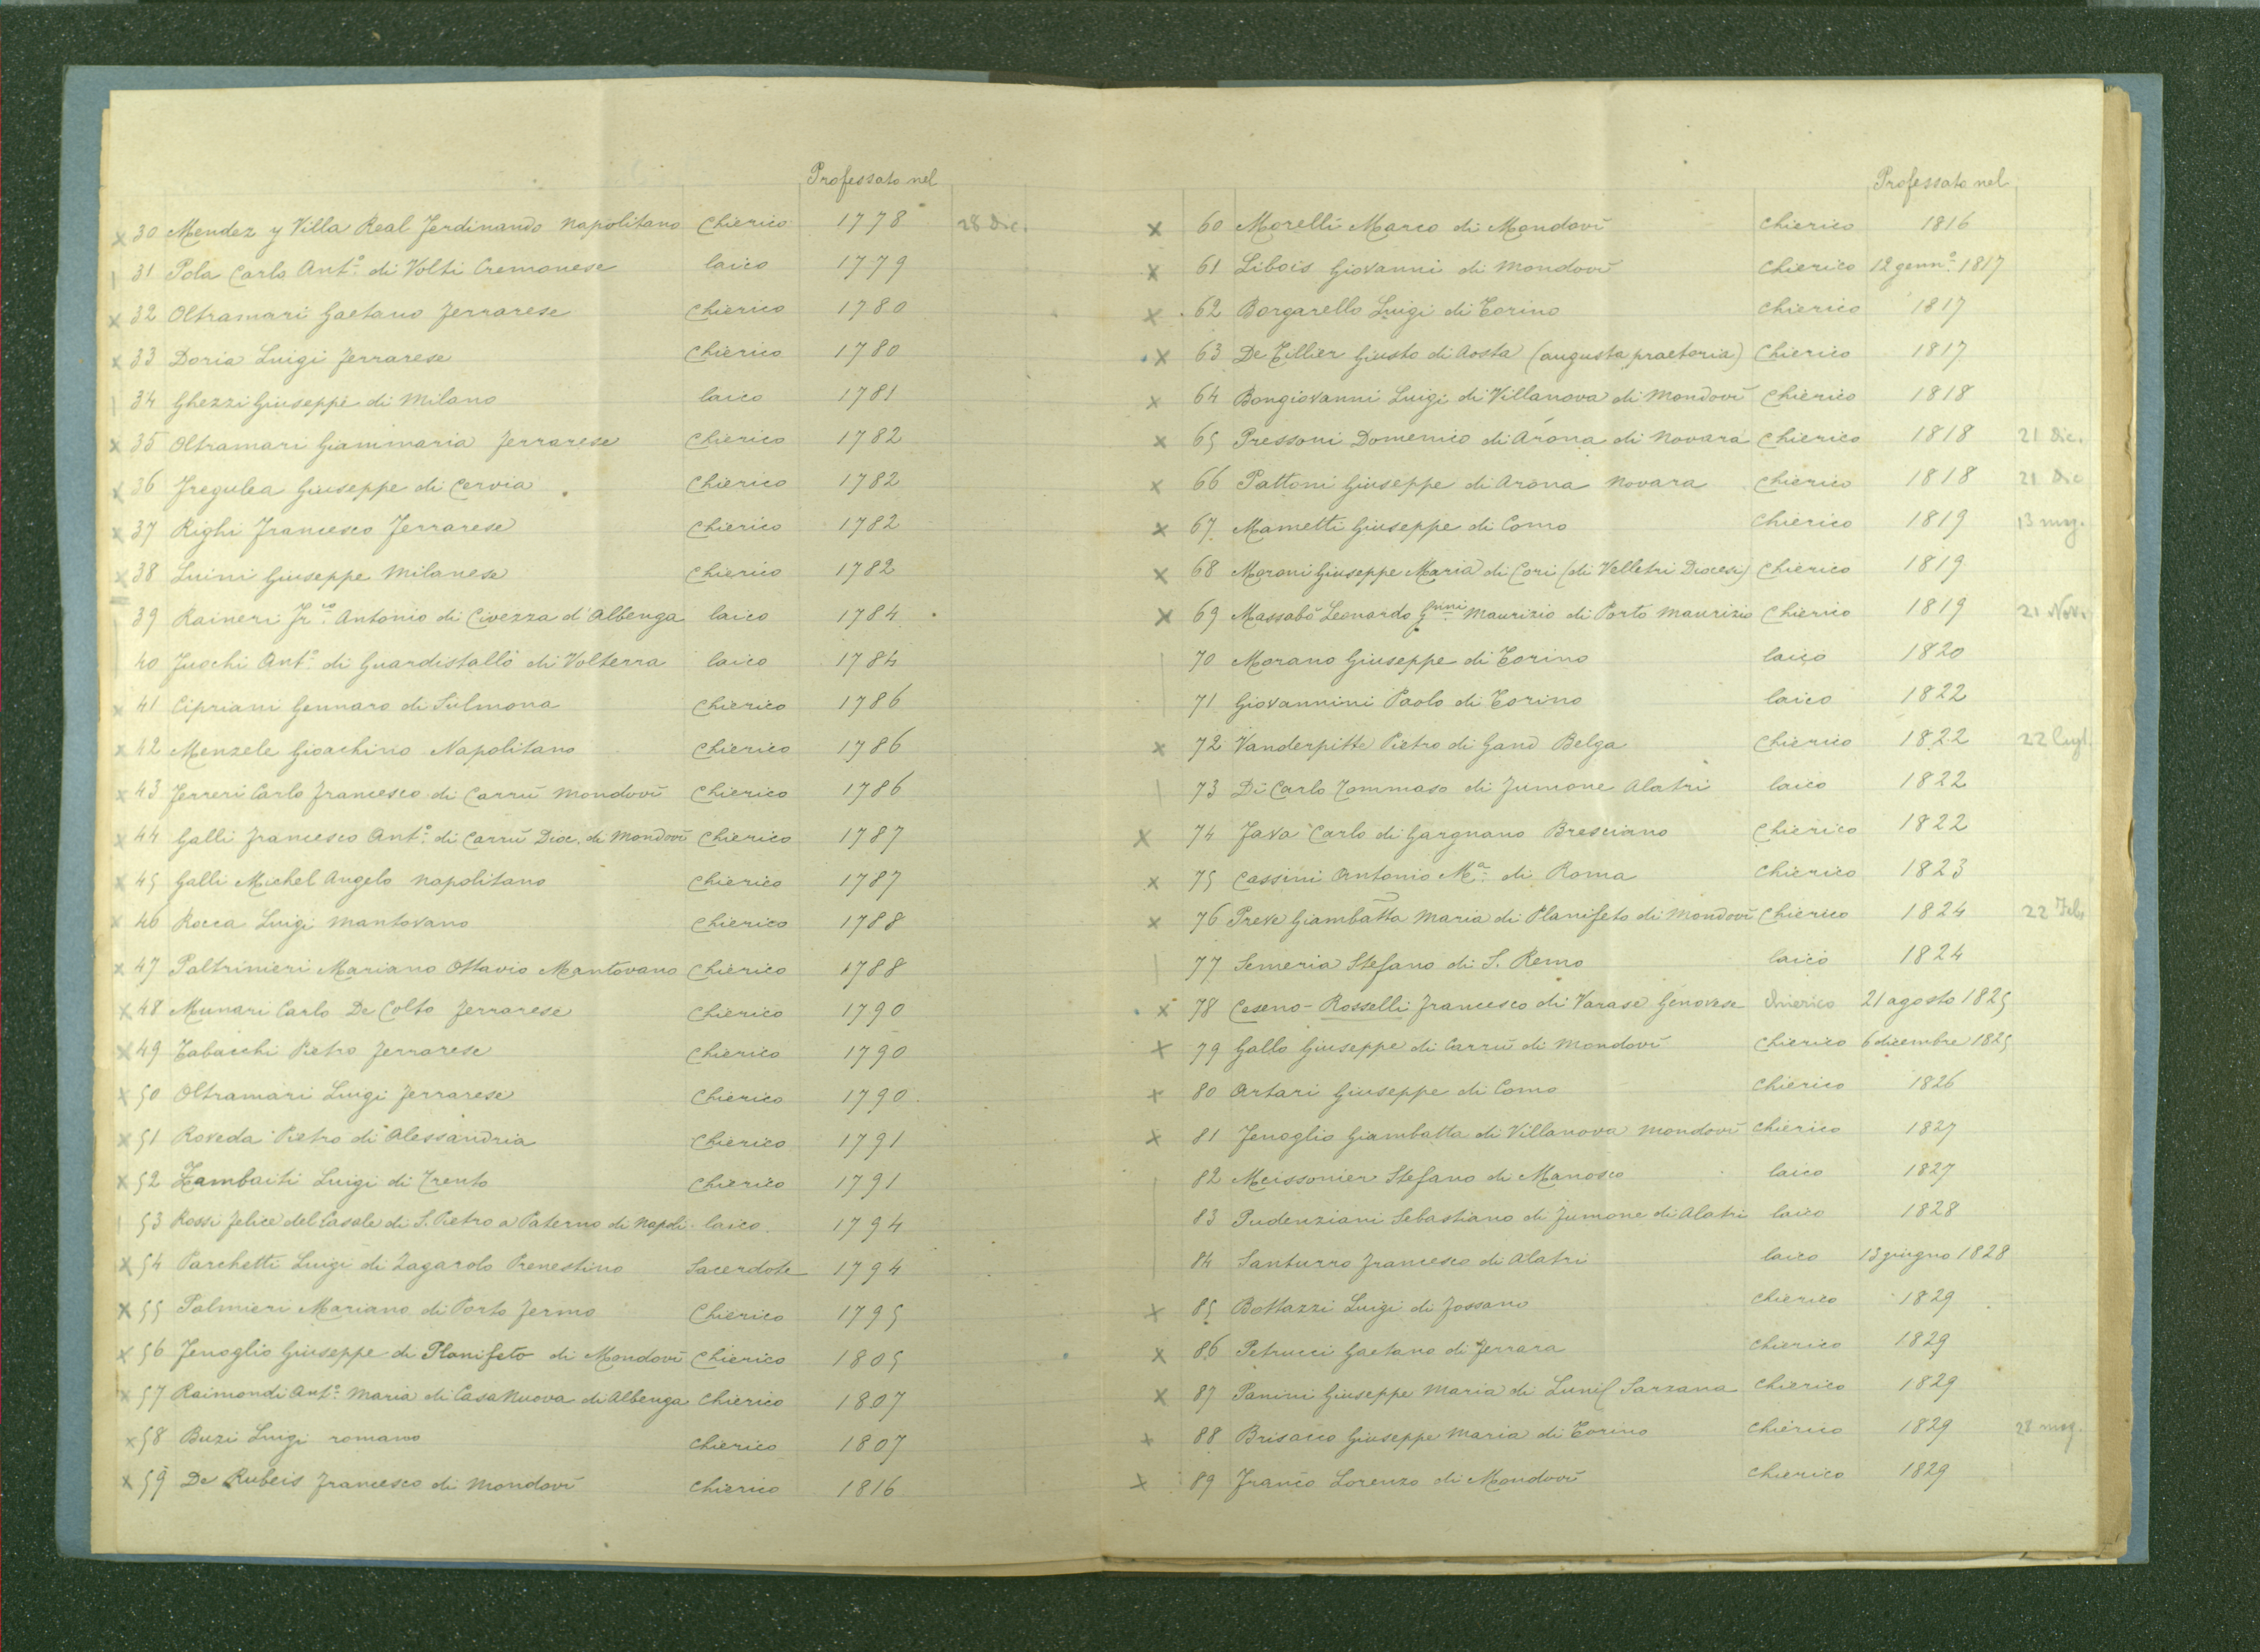 Professato nel
x 30 Mendez y Villa Real Ferdinando Napolitano Chierico 1778 28 Dic.
31 Pola Carlo Ant.º di Volti Cremonese laico 1779
x 32 Oltramari Gaetano Ferrarese Chierico 1780
x 33 Doria Luigi Ferrarese Chierico 1780
34 Ghezzi Giuseppe di Milano laico 1781
x 35 Oltramari Giammaria Ferrarese Chierico 1782
x 36 Fregulea Giuseppe di Cervia Chierico 1782
x 37 Righi Francesco Ferrarese Chierico 1782
x 38 Luini Giuseppe Milanese Chierico 1782
39 Raineri Fr.co Antonio di Civezza d'Albenga laico 1784
40 Fuochi Ant.º di Guardistallo di Volterra laico 1784
x 41 Cipriani Gennaro di Sulmona Chierico 1786
x 42 Menzele Gioachino Napolitano Chierico 1786
x 43 Ferreri Carlo Francesco di Carrù Mondovì Chierico 1786
x 44 Galli Francesco Ant.º di Carrù Dioc. di Mondovì Chierico 1787
x 45 Galli Michel Angelo Napolitano Chierico 1787
x 46 Rocca Luigi Mantovano Chierico 1788
x 47 Paltrinieri Mariano Ottavio Mantovano Chierico 1788
x 48 Munari Carlo De Colto Ferrarese Chierico 1790
x 49 Tabacchi Pietro Ferrarese Chierico 1790
x 50 Oltramari Luigi Ferrarese Chierico 1790
x 51 Roveda Pietro di Alessandria Chierico 1791
x 52 Zambaiti Luigi di Trento Chierico 1791
53 Rossi Felice del Casale di S. Pietro a Paterno di Napoli laico 1794
x 54 Parchetti Luigi di Zagarolo Prenestino Sacerdote 1794
x 55 Palmieri Mariano di Porto Fermo Chierico 1795
x 56 Fenoglio Giuseppe di Planifeto di Mondovì Chierico 1805
x 57 Raimondi Ant.º Maria di Casa Nuova di Albenga Chierico 1807
x 58 Buzi Luigi romano Chierico 1807
x 59 De Rubeis Francesco di Mondovì Chierico 1816
Professato nel
x 60 Morelli Marco di Mondovì Chierico 1816
x 61 Libois Giovanni di Mondovì Chierico 12 genn.º 1817
x 62 Borgarello Luigi di Torino Chierico 1817
x 63 De Tillier Giusto di Aosta (augusta praetoria) Chierico 1817
x 64 Bongiovanni Luigi di Villanova di Mondovì Chierico 1818
x 65 Pressoni Domenico di Arona di Novara Chierico 1818 21 Dic.
x 66 Pattoni Giuseppe di Arona Novara Chierico 1818 21 Dic
x 67 Mametti Giuseppe di Como Chierico 1819 13 mag.
x 68 Moroni Giuseppe Maria di Cori (di Velletri Diocesi) Chierico 1819
x 69 Massabò Leonardo Maurizio di Porto Maurizio Chierico 1819 21 Nov.
70 Morano Giuseppe di Torino laico 1820
71 Giovannini Paolo di Torino laico 1822
x 72 Vanderpitte Pietro di Gand Belga Chierico 1822 22 lugl.
73 Di Carlo Tommaso di Fumone Alatri laico 1822
x 74 Fava Carlo di Gargnano Bresciano Chierico 1822
x 75 Cassini Antonio M.ª di Roma Chierico 1823
x 76 Preve Giambatta Maria di Planifeto di Mondovì Chierico 1824 22 Feb.
77 Semeria Stefano di S. Remo laico 1824
x 78 Ceseno-Rosselli Francesco di Varase Genovese Chierico 21 agosto 1825
x 79 Gallo Giuseppe di Carrù di Mondovì Chierico 6 dicembre 1825
x 80 Artari Giuseppe di Como Chierico 1826
x 81 Fenoglio Giambatta di Villanova Mondovì Chierico 1827
82 Meissonier Stefano di Manosco laico 1827
83 Pudenziani Sebastiano di Fumone di Alatri laico 1828
84 Santurro Francesco di Alatri laico 13 giugno 1828
x 85 Bottazzi Luigi di Fossano Chierico 1829
x 86 Petrucci Gaetano di Ferrara Chierico 1829
x 87 Panini Giuseppe Maria di Sarzana Chierico 1829
x 88 Brisacco Giuseppe Maria di Torino Chierico 1829 28 mag.
x 89 Franco Lorenzo di Mondovì Chierico 1829